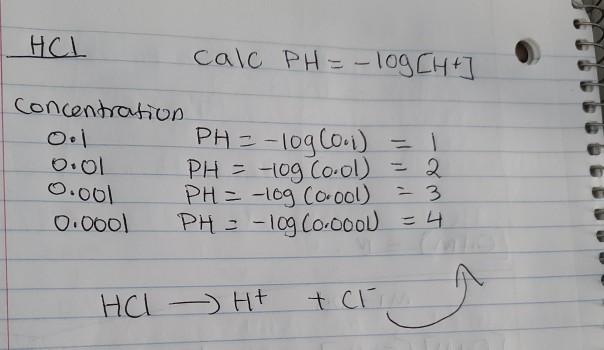 HCl
Calc PH = -log[H+]
Concentration
0.1 PH = -log(0.1) = 1
0.01 PH = -log(0.01) = 2
0.001 PH = -log(0.001) = 3
0.0001 PH = -log(0.0001) = 4
HCl → H+ + Cl-